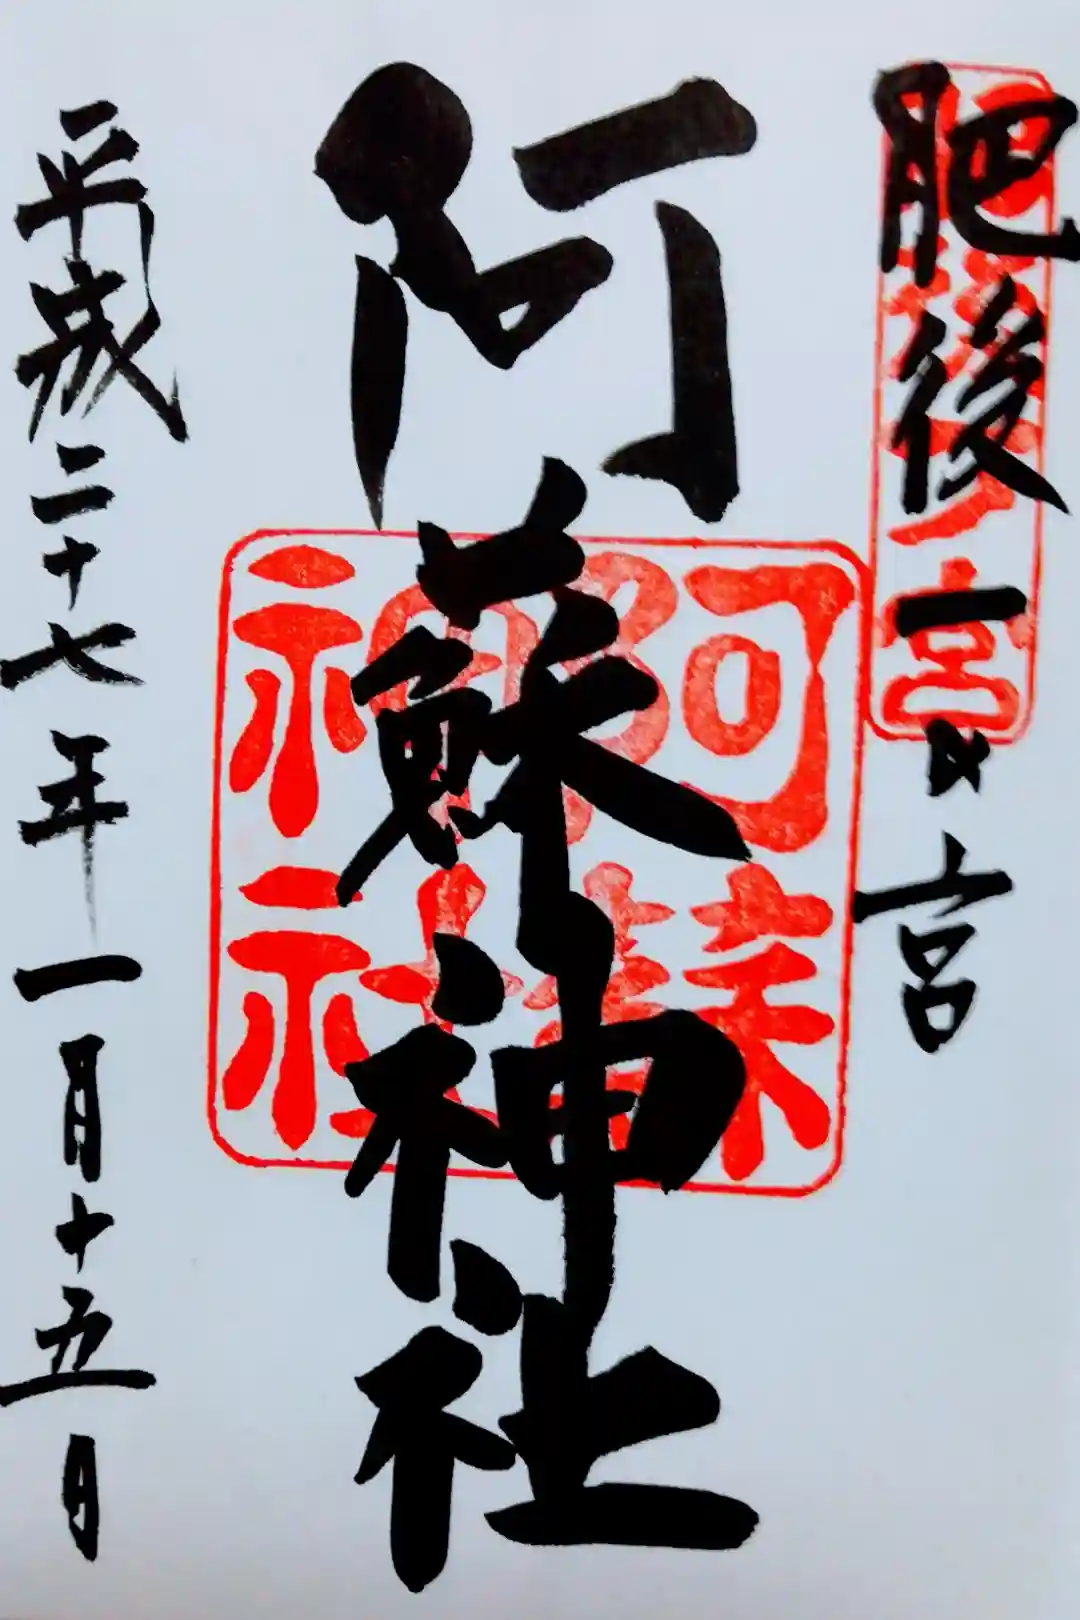 肥後一の宮
肥後一ノ宮
阿蘇神社
阿蘇
神社
平成二十七年一月十五日